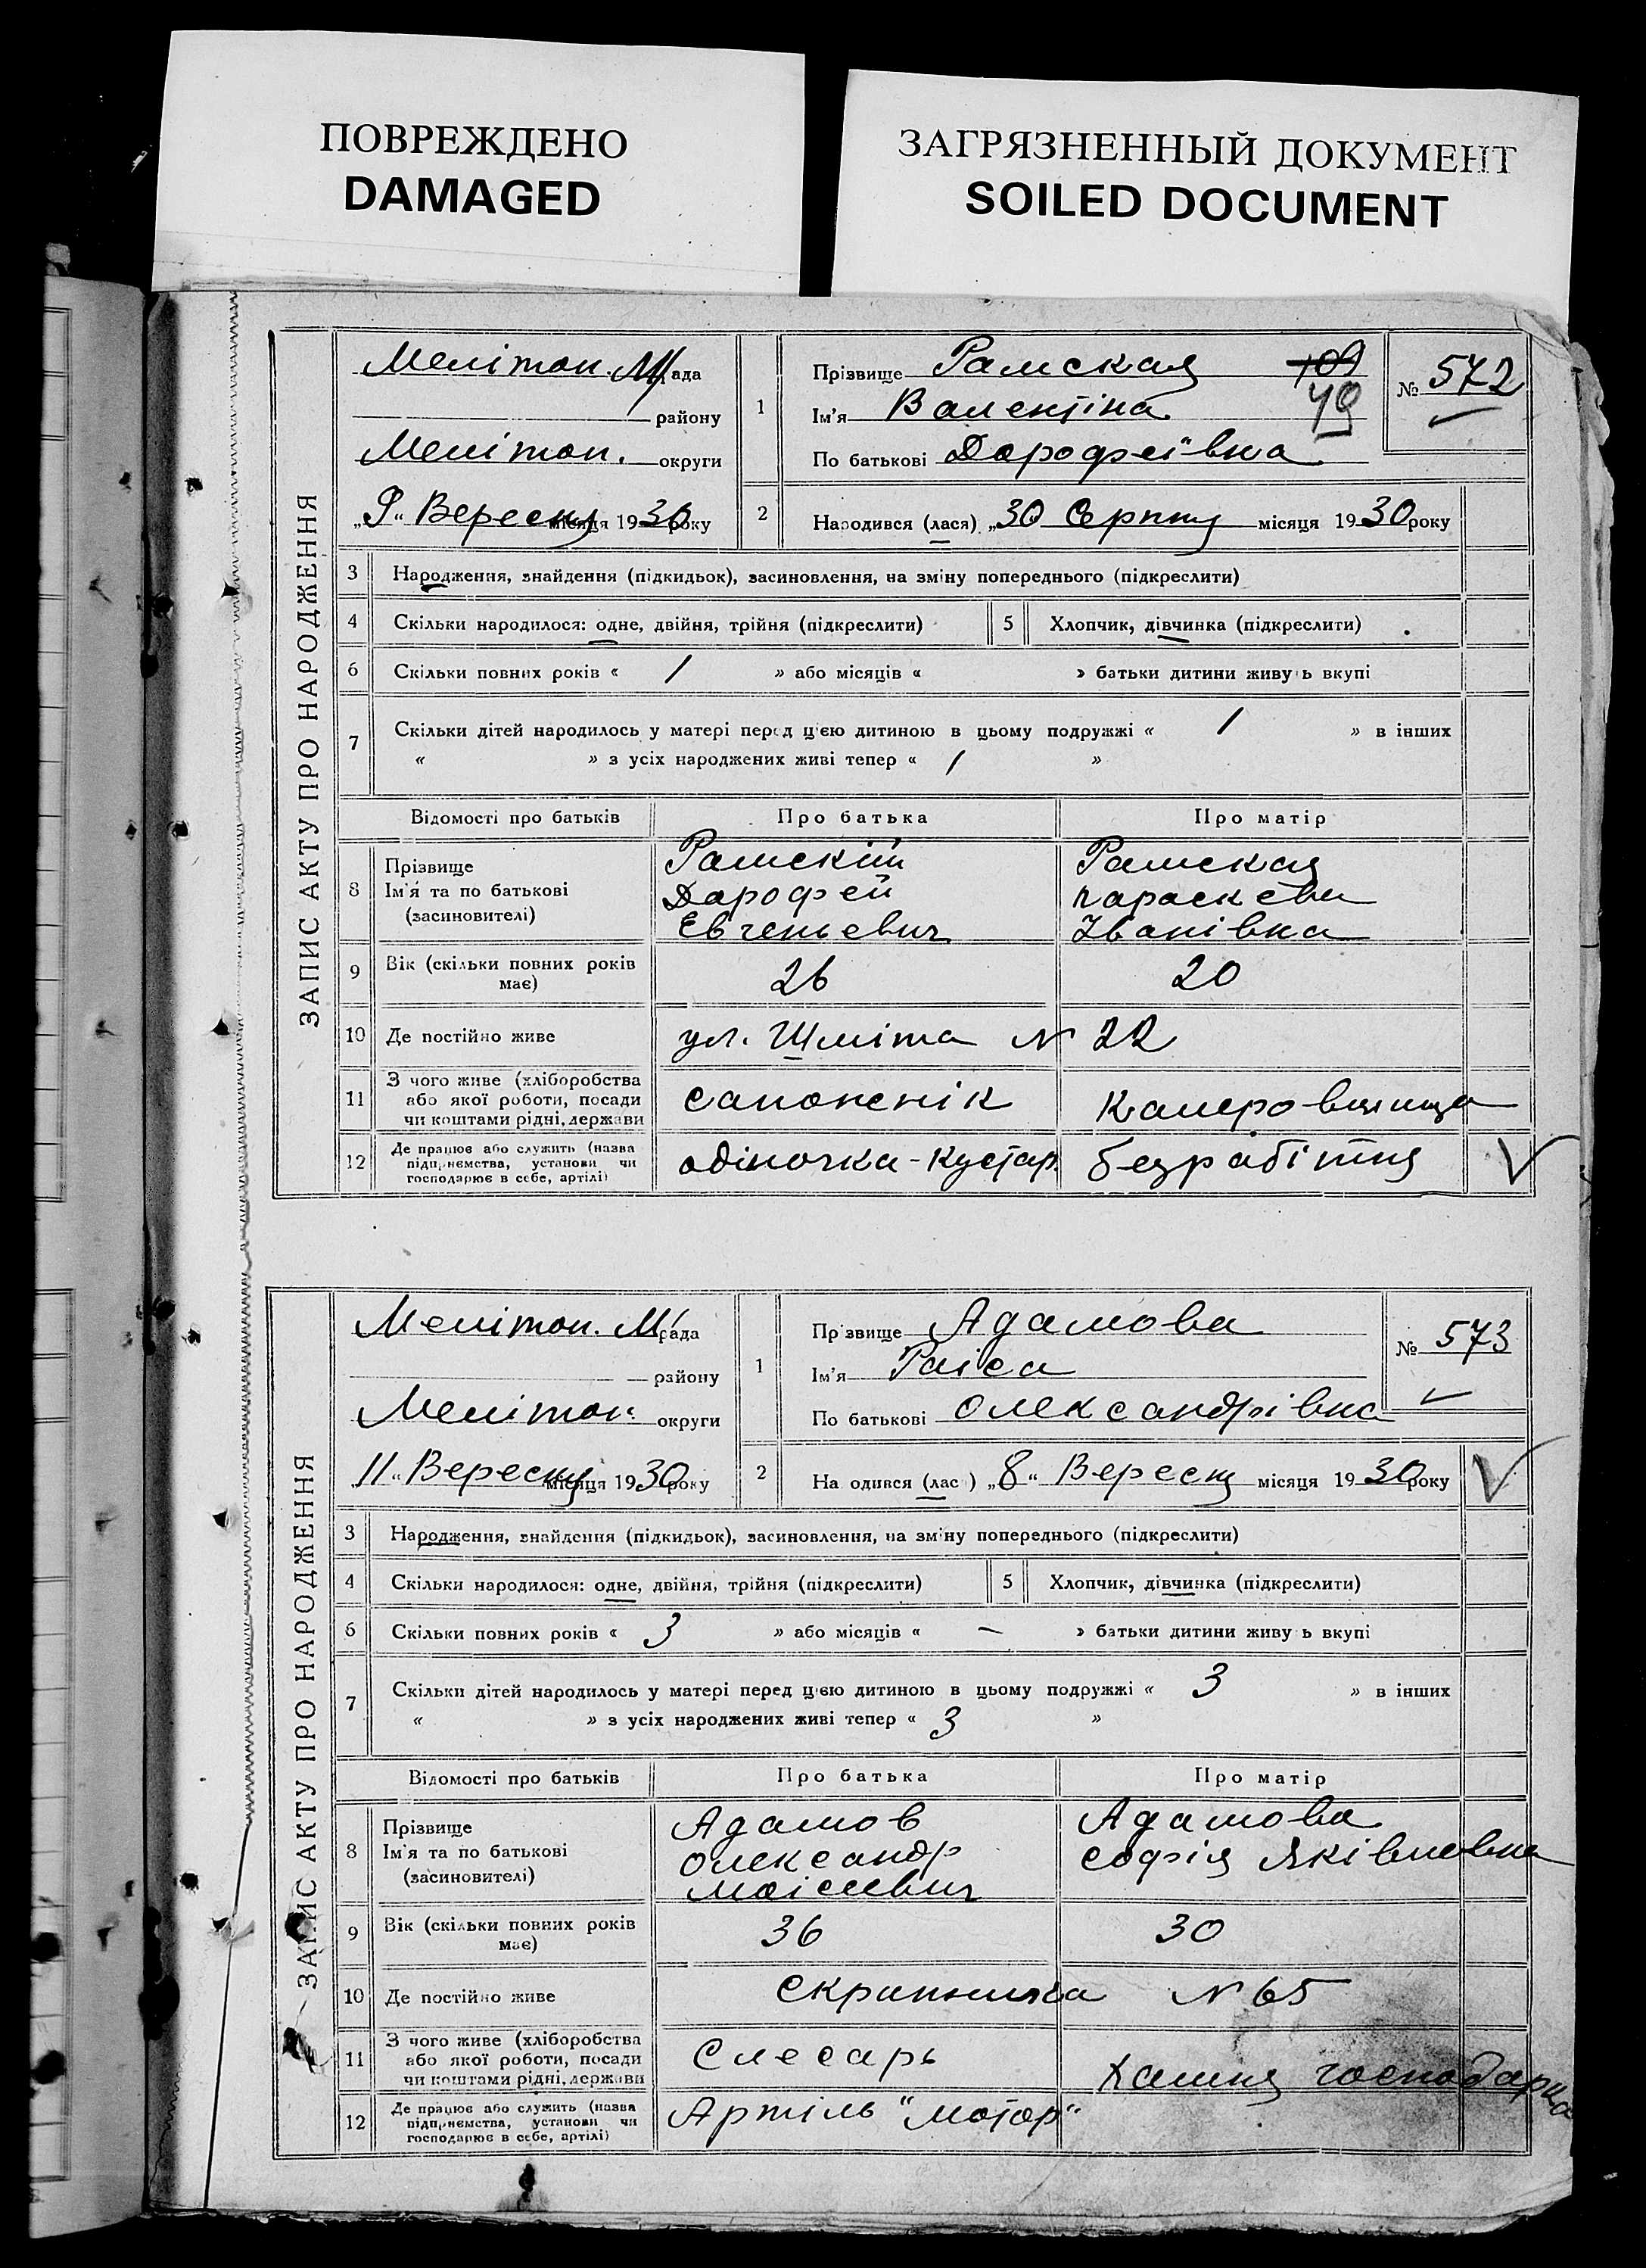 ПОВРЕЖДЕНО
DAMAGED
ЗАГРЯЗНЕННЫЙ ДОКУМЕНТ
SOILED DOCUMENT
ЗАПИС АКТУ ПРО НАРОДЖЕННЯ
Меліτοπ. М/рада
району
Меліτοπ. округи
„9“ Вересня місяця 1930 року
1
Прізвище Рамская
109
49
Ім'я Валентіна
По батькові Дарофеївна
№ 572
2
Народився (лася) „30 Серпня місяця 1930 року
3 Народження, знайдення (підкидьок), засиновлення, на зміну попереднього (підкреслити)
4 Скільки народилося: одне, двійня, трійня (підкреслити) 5 Хлопчик, дівчинка (підкреслити)
6 Скільки повних років « 1 » або місяців « » батьки дитини живуть вкупі
7 Скільки дітей народилось у матері перед цією дитиною в цьому подружжі « 1 » в інших
« » з усіх народжених живі тепер « 1 »
Відомості про батьків Про батька Про матір
8 Прізвище Рамскій Рамская
Ім'я та по батькові Дарофей Параскева
(засиновителі) Евгеньевич Іванівна
9 Вік (скільки повних років має) 26 20
10 Де постійно живе ул. Шміта № 22
11 З чого живе (хліборобства
або якої роботи, посади
чи коштами рідні, держави
сапожнік
12 Де працює або служить (назва
підприємства, установи чи
господарює в себе, артілі)
одіночка-кустар. безрабітня
ЗАПИС АКТУ ПРО НАРОДЖЕННЯ
Меліτοπ. М/рада
району
Меліτοπ. округи
„11“ Вересня місяця 1930 року
1
Прізвище Адамова
Ім'я Раіса
По батькові Олександрівна
№ 573
2
Народився (лася) „8“ Вересня місяця 1930 року
3 Народження, знайдення (підкидьок), засиновлення, на зміну попереднього (підкреслити)
4 Скільки народилося: одне, двійня, трійня (підкреслити) 5 Хлопчик, дівчинка (підкреслити)
6 Скільки повних років « 3 » або місяців « — » батьки дитини живуть вкупі
7 Скільки дітей народилось у матері перед цією дитиною в цьому подружжі « 3 » в інших
« » з усіх народжених живі тепер « 3 »
Відомості про батьків Про батька Про матір
8 Прізвище Адамов Адамова
Ім'я та по батькові Олександр Софія Яківлевна
(засиновителі) Моісеевич
9 Вік (скільки повних років має) 36 30
10 Де постійно живе № 65
11 З чого живе (хліборобства
або якої роботи, посади
чи коштами рідні, держави
Слесарь Хатня господарка
12 Де працює або служить (назва
підприємства, установи чи
господарює в себе, артілі)
Артіль "Мотор"